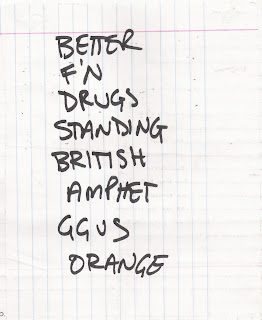 BETTER
F'N
DRUGS
STANDING
BRITISH
AMPHET
GGUS
ORANGE